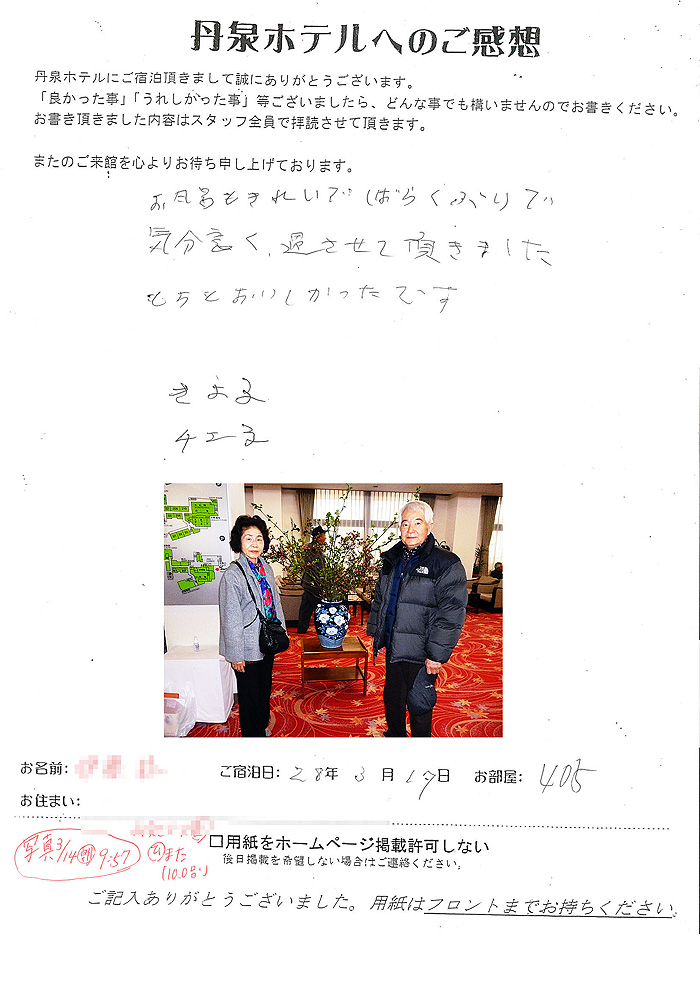 丹泉ホテルへのご感想
丹泉ホテルにご宿泊頂きまして誠にありがとうございます。
「良かった事」「うれしかった事」等ございましたら、どんな事でも構いませんのでお書きください。
お書き頂きました内容はスタッフ全員で拝読させて頂きます。
またのご来館を心よりお待ち申し上げております。
お風呂もきれいで しばらくぶりで
気分良く、過させて頂きました
もちもおいしかったです
THE NORTH FACE
お名前:
ご宿泊日: 28年 3月 17日 お部屋: 405
お住まい:
写真3/14 9:57
また
□用紙をホームページ掲載許可しない
後日掲載を希望しない場合はご連絡ください。
ご記入ありがとうございました。用紙はフロントまでお持ちください。